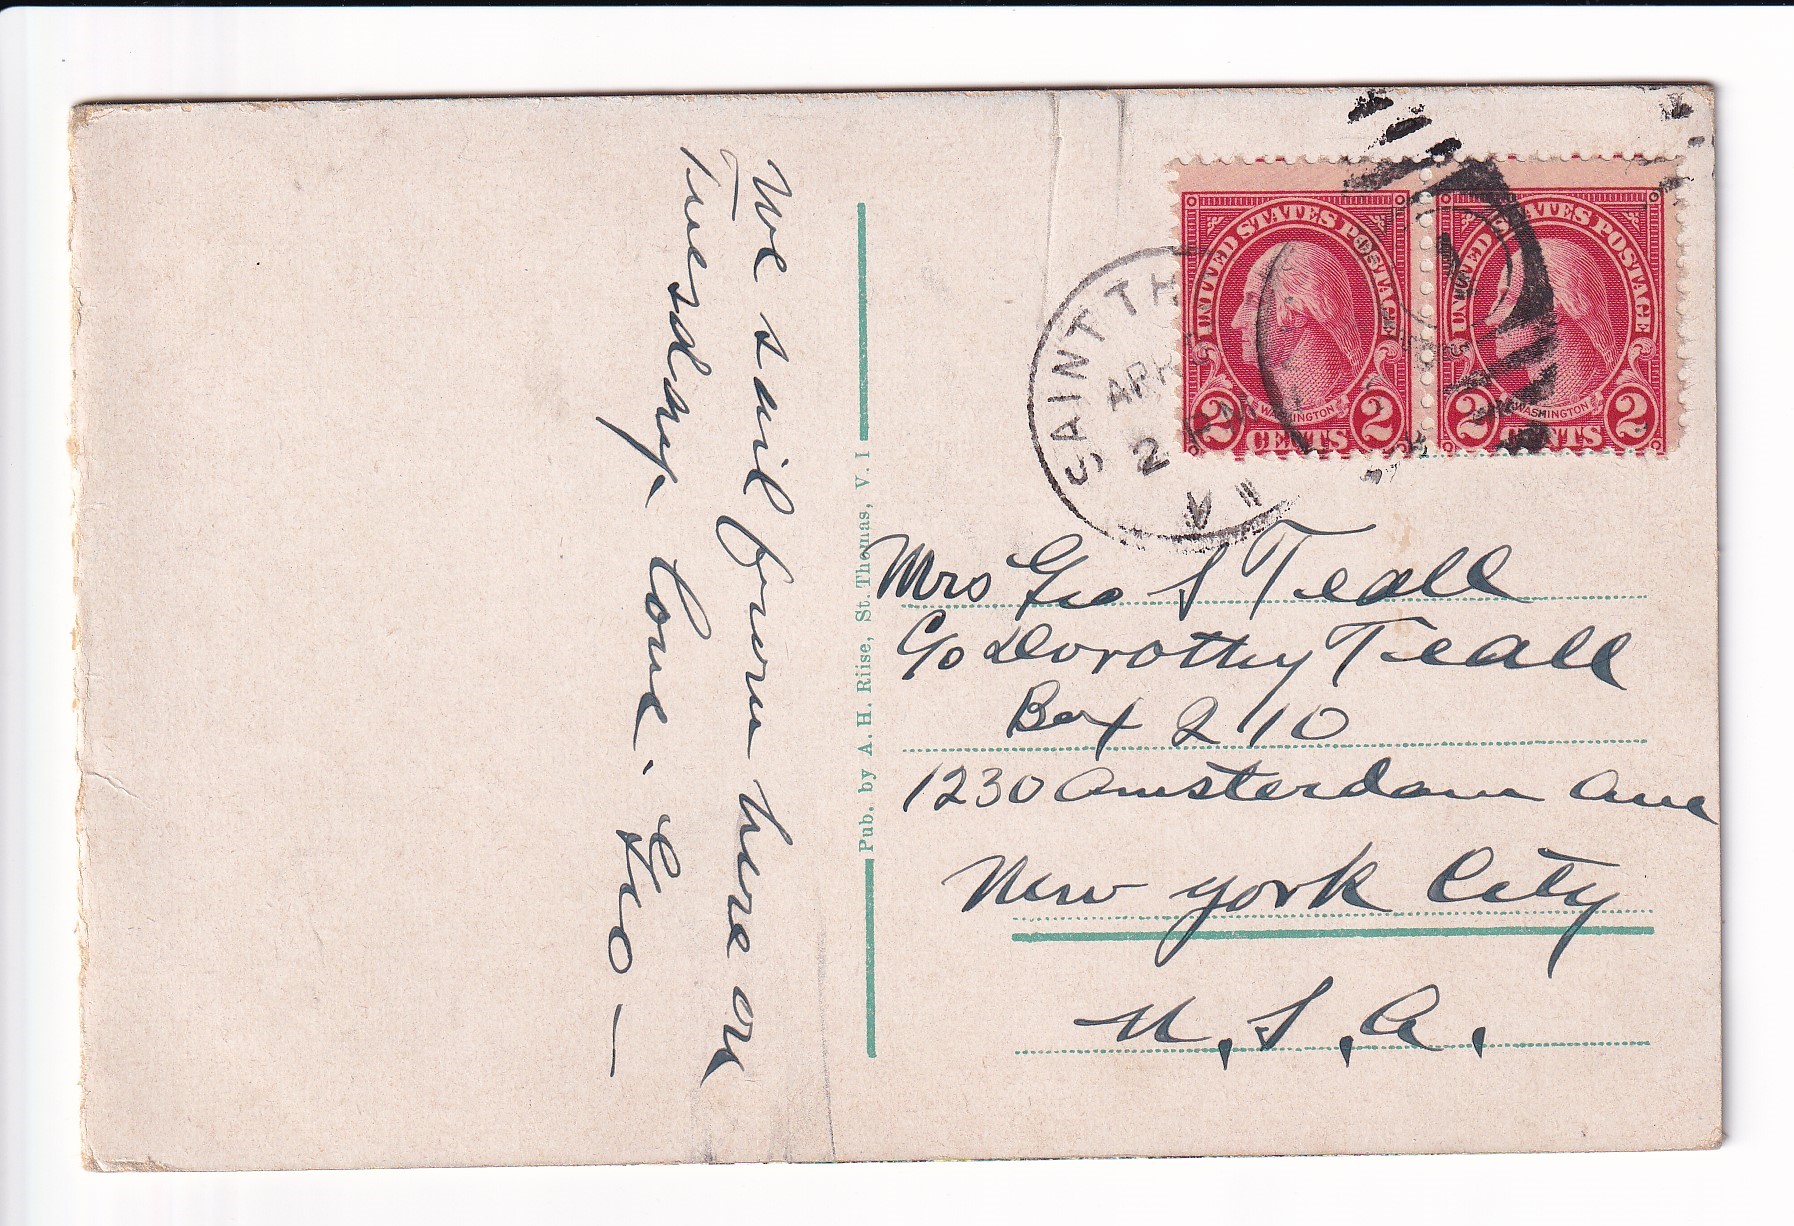 We sail from here on
Tuesday. Love. Geo —
Pub. by A. H. Riise, St. Thomas, V. I
SAINT TH
APR
2 PM
V I
UNITED STATES POSTAGE
WASHINGTON
2 CENTS 2
UNITED STATES POSTAGE
WASHINGTON
2 CENTS 2
Mrs Geo S Teall
C/o Dorothy Teall
Box 210
1230 Amsterdam Ave
New York City
U.S.A.